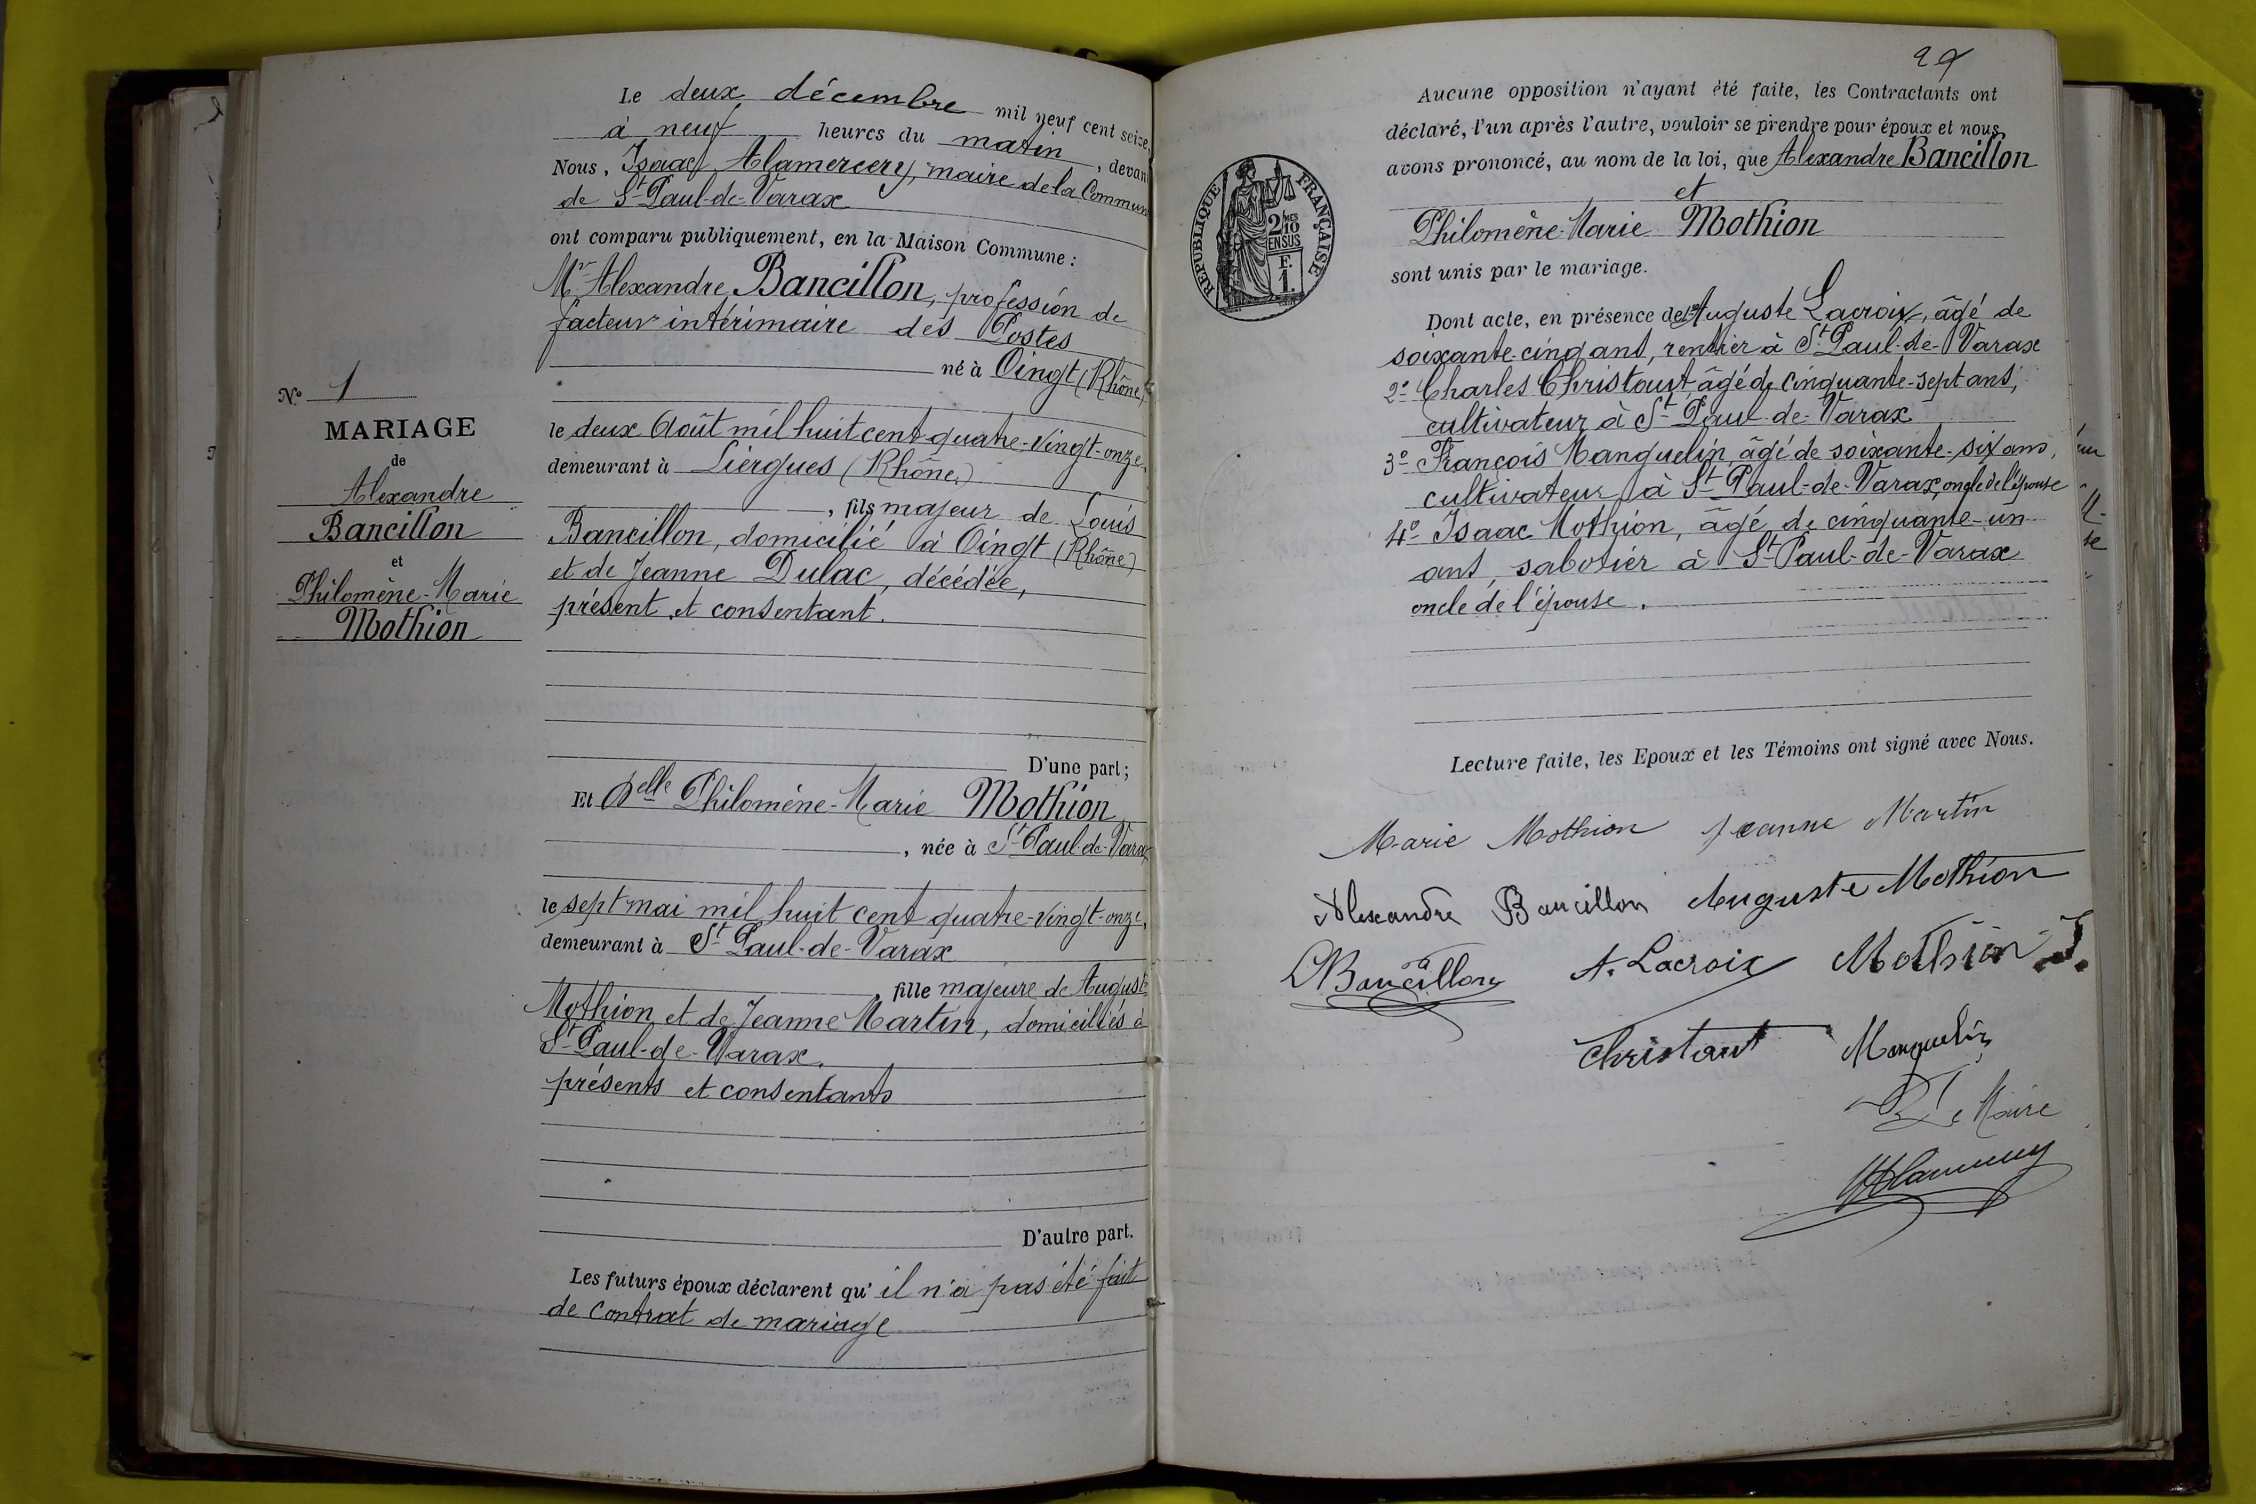 Le deux décembre mil neuf cent seize,
à neuf heures du matin, devan
Nous, Isaac Alamercery, maire de la Commune
de St Paul-de-Varax
ont comparu publiquement, en la Maison Commune :
Mr Alexandre Bancillon, profession de
facteur intérimaire des Postes
né à Oingt (Rhône)
le deux Août mil huit cent quatre-vingt-onze,
demeurant à Liergues (Rhône)
, fils majeur de Louis
Bancillon, domicilié à Oingt (Rhône)
et de Jeanne Dulac, décédée,
présent et consentant.
D'une part;
Et Delle Philomène-Marie Mothion
, née à St Paul-de-Varax
le sept mai mil huit cent quatre-vingt-onze,
demeurant à St Paul-de-Varax
, fille majeure de August
Mothion et de Jeanne Martin, domiciliés à
St Paul-de-Varax.
présents et consentants
D'autre part.
Les futurs époux déclarent qu'il n'a pas été fait
de contrat de mariage
No 1
MARIAGE
de
Alexandre
Bancillon
et
Philomène-Marie
Mothion
Aucune opposition n'ayant été faite, les Contractants ont
déclaré, l'un après l'autre, vouloir se prendre pour époux et nous
avons prononcé, au nom de la loi, que Alexandre Bancillon
et
Philomène-Marie Mothion
sont unis par le mariage.
Dont acte, en présence de 1o Auguste Lacroix, âgé de
soixante-cinq ans, rentier à St Paul-de-Varax
2o Charles Christaut âgé de cinquante-sept ans,
cultivateur à St Paul-de-Varax
3o François Manguelin âgé de soixante-six ans,
cultivateur à St Paul-de-Varax, oncle de l'épouse
4o Isaac Mothion, âgé de cinquante-un
ans, sabotier à St Paul-de-Varax
oncle de l'épouse.
Lecture faite, les Epoux et les Témoins ont signé avec Nous.
Marie Mothion Jeanne Martin
Alexandre Bancillon Auguste Mothion
Bancillon A. Lacroix Mothion J.
Christaut Manguelin
Le Maire
RÉPUBLIQUE FRANÇAISE
2 MES
10
EN SUS
F.
1.